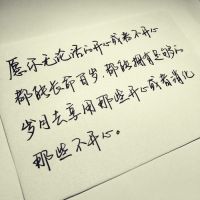 愿你无论活的开心或者不开心
都能长命百岁 都能拥有足够的
岁月去享用那些开心或者消化
那些不开心。